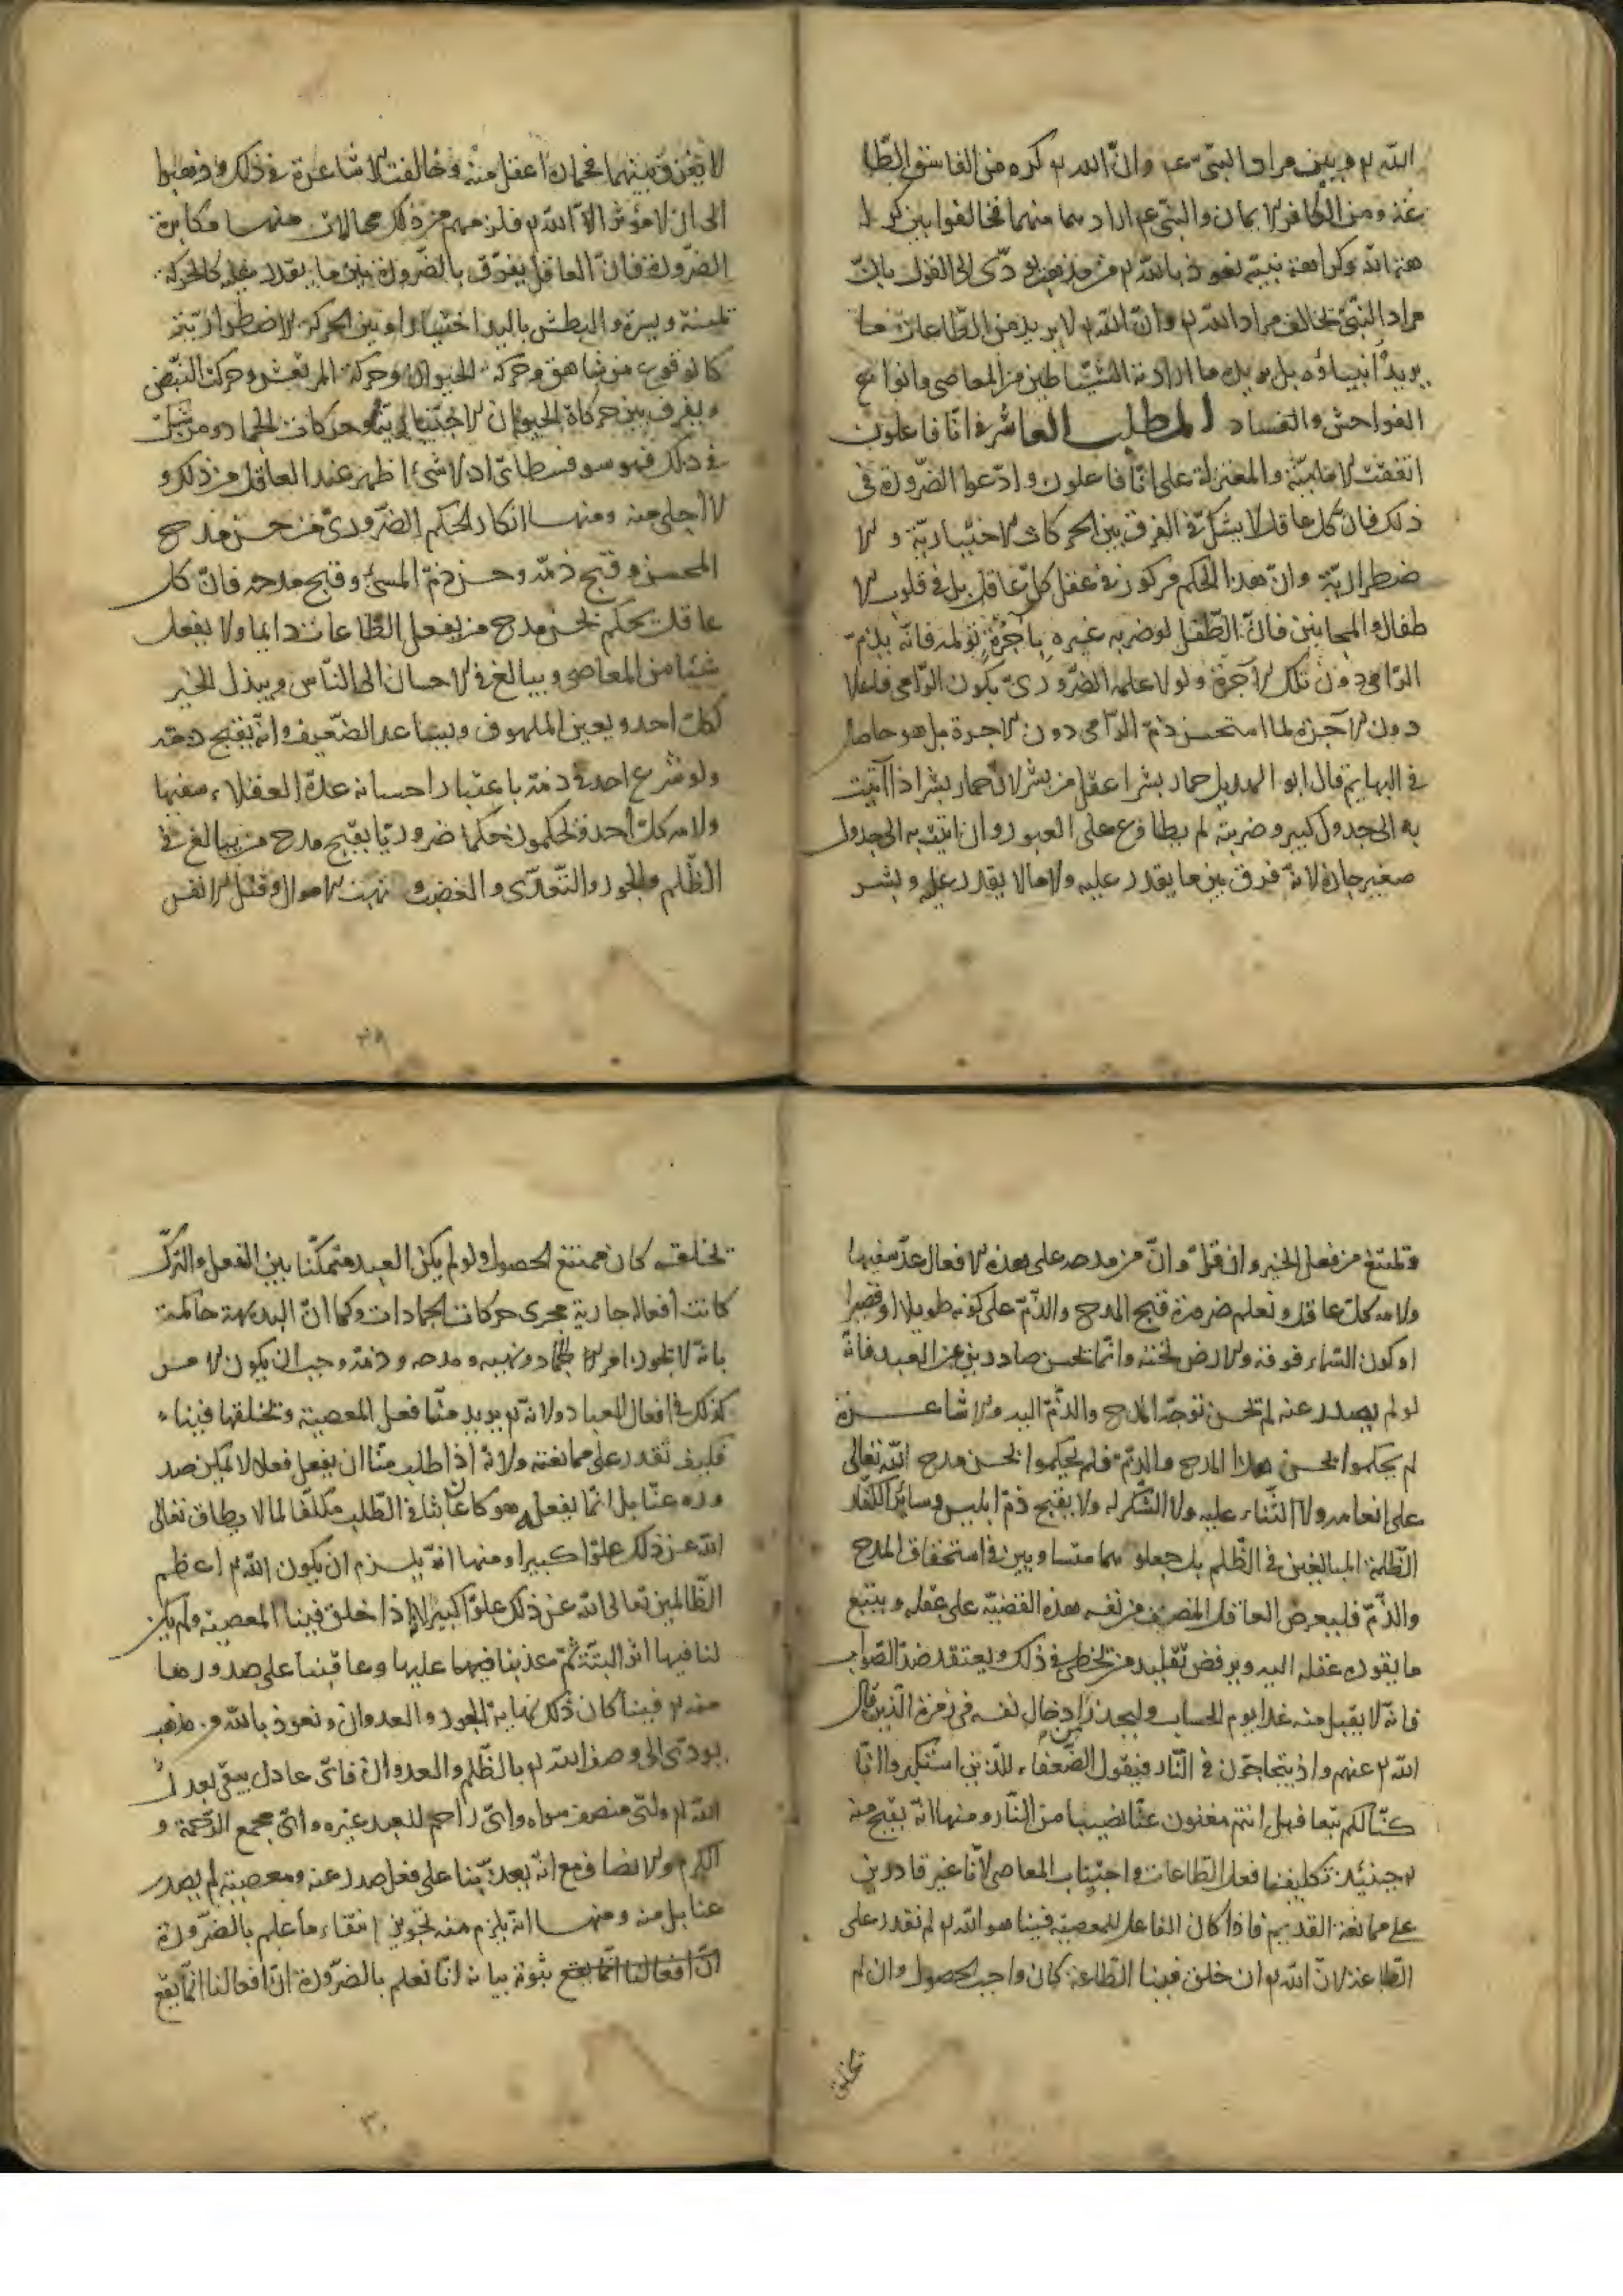 الله تم وبين مراد النبى عم وان الله تم كره من الفاسق الطا
عة ومن الكافر الايمان والنبى عم اراد هما منهما فخالفوا بين كرا
هته الله وكراهة نبيه نعوذ بالله تم من مذهب يودّى الى القول بانّ
مراد النبىّ يخالف مراد الله تم وانّ الله تم لا يريد من الطاعات ما
يريد انبياؤه بل يريد ما ارادته الشياطين من المعاصى وانواع
الفواحش والفساد المطلب العاشر فى انّا فاعلون
اتفقت الامامية والمعتزلة على انّا فاعلون وادّعوا الضّرورة فى
ذلك فان كل عاقل لا يشكّ فى الفرق بين الحركات الاختيارية و الا
ضطرارية وانّ هذا الحكم مركوز فى عقل كل عاقل بل فى قلوب الا
طفال والمجانين فانّ الطّفل لو ضربه غيره باجرة تؤلمه فانّه يذمّ
الرّامى دون تلك الآجرة ولولا علمه الضّرورىّ بكون الرّامى فاعلا
دون الآجرة لما استحسن ذمّ الرّامى دون الاجرة بل هو حاصل
فى البهايم قال ابو الهذيل حمار بشر اعقل من بشر لان حمار بشر اذا اتيت
به الى جدول كبير وضربته لم يطاوع على العبور وان اتيت به الى جدول
صغير جازه لانّه فرق بين ما يقدر عليه و ما لا يقدر عليه وبشر
لا يفرق بينهما فحماره اعقل منه وخالفت الاشاعرة فى ذلك وذهبوا
الى ان لا مؤثر الا الله تم فلزمهم من ذلك محالات منها مكابرة
الضرورة فانّ العاقل يفرّق بالضّرورة بين ما يقدر عليه كالحركة
يمنة ويسرة والبطش باليد اختيارا وبين الحركة الاضطرارية
كالوقوع من شاهق وحركة الحيوان وحركة المرتعش وحركت النّبض
ويفرق بين حركاة الحيوان الاختيارية وحركات الجماد ومن شكّ
فى ذلك فهو سوفسطائىّ اذ لا شئ اظهر عند العاقل من ذلك و
لا اجلى منه ومنها انكار الحكم الضّرورىّ من حسن مدح
المحسن وقبح ذمّه وحسن ذمّ المسئ وقبح مدحه فانّ كل
عاقل يحكم بحسن مدح من يفعل الطّاعات دايما ولا يفعل
شيئا من المعاصى ويبالغ فى الاحسان الى النّاس ويبذل الخير
لكلّ احد ويعين الملهوف ويساعد الضّعيف وانّه يقبح ذمّه
ولو شرع احد فى ذمّه باعتبار احسانه عدّه العقلاء سفيها
ولامه كلّ احد ويحكمون حكما ضروريّا بقبح مدح من يبالغ فى
الظّلم والجور والتّعدّى والغضب و نهب الاموال وقتل الانفس
ويمتنع من فعل الخير وان قلّ وانّ من مدحه على هذه الافعال عدّ سفيها
ولامه كلّ عاقل ونعلم ضرورة قبح المدح والذّمّ على كونه طويلا او قصيرا
او كون السّماء فوقه والارض تحته وانّما يحسن صادرين عن العبد فانّه
لو لم يصدر عنه لم يحسن توجّه المدح والذّمّ اليه والاشاعرة
لم يحكموا بحسن هذا المدح والذّمّ فلم يحكموا بحسن مدح الله تعالى
على انعامه ولا الثّناء عليه ولا الشّكر له ولا بقبح ذمّ ابليس وساير الكفّار
الظّلمة المبالغين فى الظّلم بل جعلو هما متساويين فى استحقاق المدح
والذّمّ فليعرض العاقل المنصف من نفسه هذه القضيّة على عقله ويتبع
ما يقوده عقله اليه ويرفض تقليد من يخطى فى ذلك ويعتقد ضدّ الصّواب
فانّه لا يقبل منه غدا يوم الحساب وليحذر من ادخال نفسه فى زمرة الّذين قال
الله تم عنهم واذ يتحاجّون فى النّار فيقول الضّعفاء للّذين استكبروا انّا
كنّا لكم تبعا فهل انتم مغنون عنّا نصيبا من النّار ومنها انّه يقبح منه
تم حينئذ تكليفنا فعل الطّاعات واجتناب المعاصى لانّا غير قادرين
على ممانعة القديم فاذا كان الفاعل للمعصية فينا هو الله تم لم نقدر على
الطّاعة لانّ الله تم ان خلق فينا الطّاعة كان واجب الحصول وان لم
يخلق
يخلقه كان ممتنع الحصول ولو لم يكن العبد متمكّنا بين الفعل والتّرك
كانت افعاله جارية مجرى حركات الجمادات وكما انّ البديهة حاكمة
بانّه لا يجوز امر الجماد ونهيه ومدحه وذمّه وجب ان يكون الامر
كذلك فى افعال العباد ولانّه تم يريد منّا فعل المعصية ويخلقها فينا
فكيف نقدر على ممانعته ولانّه اذا طلب منّا ان يفعل فعلا لا يمكن صد
وره عنّا بل انّما يفعله هو كان عابثا فى الطّلب مكلّفا لما لا يطاق تعالى
الله عن ذلك علوّا كبيرا ومنها انّه يلزم ان يكون الله تم اعظم
الظّالمين تعالى الله عن ذلك علوّا كبيرا لانّه اذا خلق فينا المعصية ولم يكن
لنا فيها اثر البتّة ثمّ عذبنا فيها عليها وعاقبنا على صدورها
منه تم فينا كان ذلك نهاية الجور والعدوان ونعوذ بالله من مذهب
يودّى الى وصف الله تم بالظّلم والعدوان فاىّ عادل يبقى بعد
الله تم واىّ منصف سواه واىّ راحم للعبد غيره واىّ مجمع الرّحمة و
الكرم والانصاف مع انّه يعذّبنا على فعل صدر عنه ومعصية لم يصدر
عنا بل منه ومنها انّه يلزم منه تجويز انتفاء ما علم بالضّرورة
ثبوته بيانه انّا نعلم بالضّرورة انّ افعالنا انّما يقع
٣٠